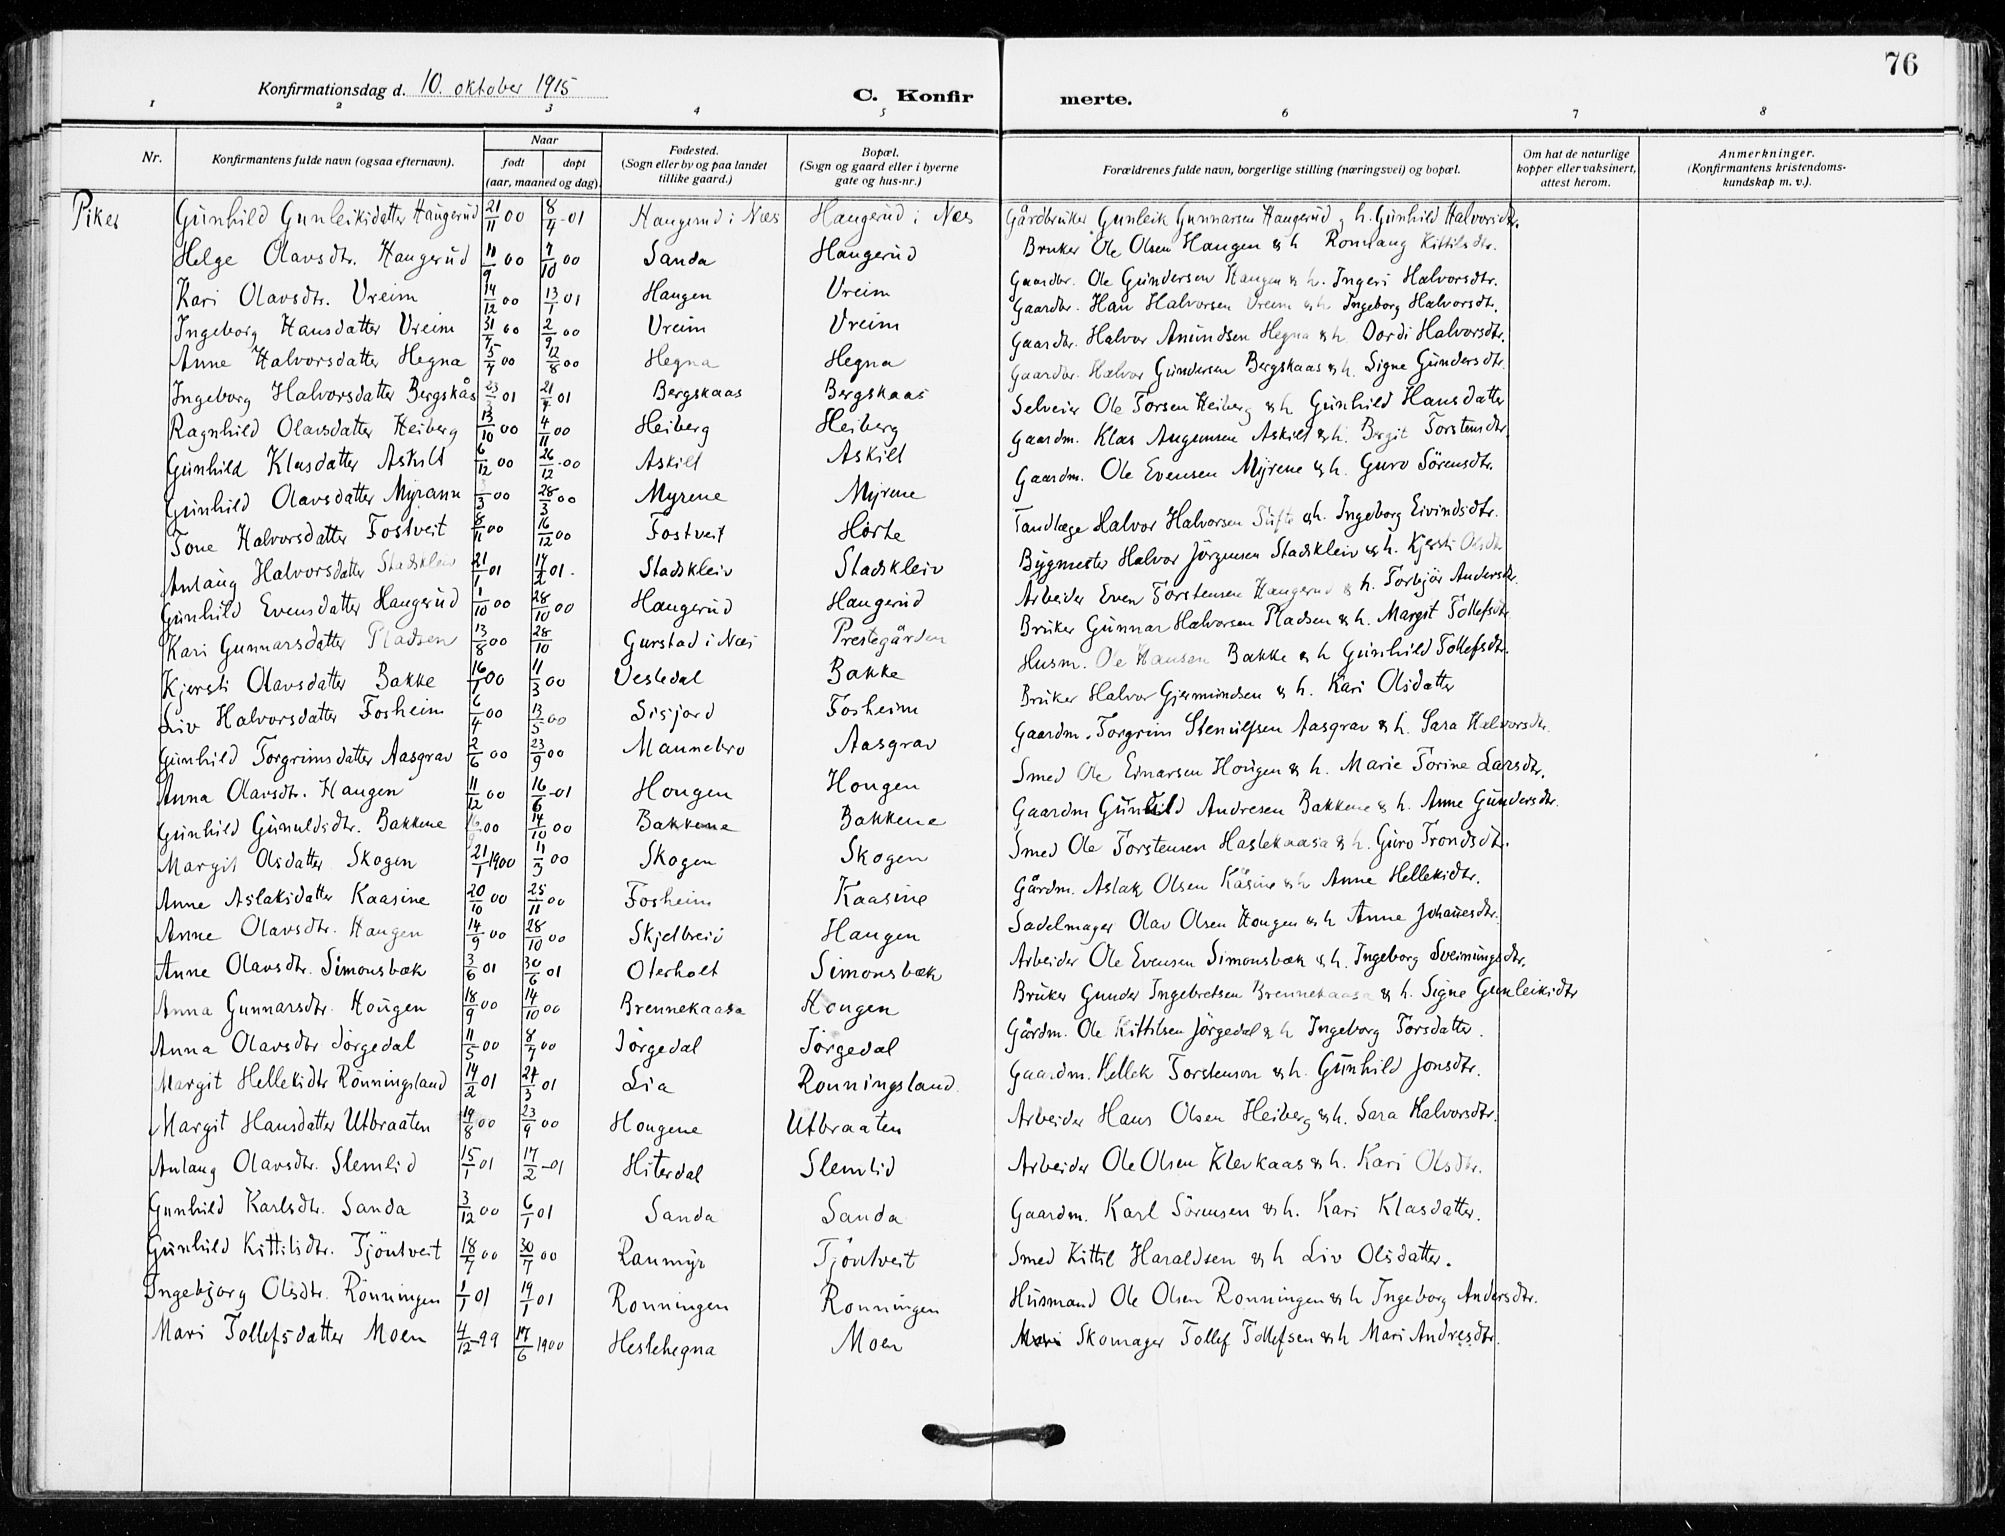 76
Konfirmationsdag d. 10. oktober 1915
C. Konfir merte.
1 2 3 4 5 6 7 8
Nr. Konfirmantens fulde navn (ogsaa efternavn). Naar født døpt (aar, maaned og dag). Fødested. (Sogn eller by og paa landet tillike gaard.) Bopæl. (Sogn og gaard eller i byerne gate og hus-nr.) Forældrenes fulde navn, borgerlige stilling (næringsvei) og bopæl. Om hat de naturlige kopper eller vaksinert, attest herom. Anmerkninger. (Konfirmantens kristendomskundskap m. v.).
Piker Gunhild Gunleiksdatter Haugerud 21/11 00 8/4 -01 Haugerud i Næs Haugerud i Næs Gårdbruker Gunleik Gunnarsen Haugerud h. Gunhild Halvorsdtr.
Helge Olavsdtr. Haugerud 11/9 00 7/10 00 Sanda Haugerud Bruker Ole Olsen Haugen & h Romlaug Kittilsdtr.
Kari Olavsdtr. Vreim 14/12 00 13/1 01 Haugen Vreim Gaardbr. Ole Gundersen Haugen & h. Ingeri Halvorsdtr.
Ingeborg Hansdatter Vreim 31/7 00 2/9 00 Vreim Vreim Gaardbr. Han Halvorsen Vreim & h. Ingeborg Halvorsdtr.
Anne Halvorsdatter Hegna 5/7 00 12/8 00 Hegna Hegna Gaardbr. Halvor Amundsen Hegna & h. Dordi Halvorsdtr.
Ingeborg Halvorsdatter Bergskås 23/3 01 21/4 01 Bergskaas Bergskaas Gaardbr. Halvor Gundersen Bergskaas & h. Signe Gundersdtr.
Ragnhild Olavsdatter Heiberg 13/10 00 4/11 00 Heiberg Heiberg Selveier Ole Torsen Heiberg & h Gunhild Hansdatter
Gunhild Klasdatter Askilt 6/12 00 26/12 -00 Askilt Askilt Gaardm. Klas Augunsen Askilt & h. Bergit Torstensdtr.
Gunhild Olavsdatter Myrann /3 00 28/3 00 Myrene Myrene Gaardm. Ole Evensen Myrene & h. Guro Sörensdtr.
Tone Halvorsdatter Fostveit 8/11 00 16/12 00 Fostveit Hørte Tandlæge Halvor Halvorsen Tufte & h. Ingeborg Eivindsdtr.
Anlaug Halvorsdatter Stadskleiv 21/1 01 14/2 01. Stadskleiv Stadskleiv Bygmester Halvor Jörgensen Stadskleiv & h. Kjersti Olsdtr
Gunhild Evensdatter Haugerud 1/10 00 28/10 00 Haugerud Haugerud Arbeider Even Torstensen Haugerud & h. Torbjör Andersdtr.
Kari Gunnarsdatter Pladsen 13/8 00 28/10 Gurstad i Næs Prestegården Bruker Gunnar Halvorsen Pladsen & h. Margit Tollefsdtr
Kjersti Olavsdatter Bakke 16/1 00 11/3 00 Vesledal Bakke Husm. Ole Hansen Bakke & h Gunhild Tollefsdtr.
Liv Halvorsdatter Fosheim 6/4 00 13/5 00 Sisjord Fosheim Bruker Halvor Gjermundsen & h. Kari Olsdatter
Gunhild Torgrimsdatter Aasgrav 2/6 00 23/9 00 Mannebro Aasgrav Gaardm. Torgrim Stenulfsen Aasgrav & h. Sara Halvorsdtr.
Anna Olavsdtr. Haugen 11/12 00 16/6 -01 Hougen Hougen Smed Ole Einarsen Hougen & h. Marie Torine Larsdtr.
Gunhild Gunuldsdtr. Bakkene 00 14/10 00 Bakkene Bakkene Gaardm Gunuld Andresen Bakkene & h. Anne Gundersdtr.
Margit Olsdatter Skogen 21/1 1900 11/3 00 Skogen Skogen Smed Ole Torstensen Haslekaasa & h. Guro Trondsdtr.
Anne Aslaksdatter Kaasine 20/10 00 25/11 00 Fosheim Kaasine Gårdm. Aslak Olsen Kåsine & h Anne Helleksdtr.
Anne Olavsdtr. Haugen 14/9 00 28/10 00 Skjelbreid Haugen Sadelmager Olav Olsen Hougen & h Anne Johanesdtr.
Anne Olavsdtr. Simonsbæk 3/6 01 30/6 01 Oterholt Simonsbæk Arbeider Ole Evensen Simonsbæk & h. Ingeborg Sveinungsdtr.
Anna Gunnarsdtr. Hougen 18/9 00 14/10 00 Brennekaasa Hougen Bruker Gunder Ingebretsen Brennekaasa & h. Signe Gunleiksdtr
Anna Olavsdtr Jørgedal 11/5 00 8/7 00 Jørgedal Jørgedal Gårdm. Ole Kittilsen Jörgedal & h Ingeborg Torsdatter.
Margit Helleksdtr Rönningsland 14/2 01 24/3 01 Lia Ronningsland Gaardm. Hellek Torstenson & h. Gunhild Jonsdtr.
Margit Hansdatter Utbraaten 19/8 00 23/9 00 Hougene Utbraaten Arbeider Hans Olsen Heiberg & h. Sara Halvorsdtr.
Anlaug Olavsdtr. Slemlid 15/1 01 17/2 -01 Hiterdal Slemlid Arbeider Ole Olsen Klevkaas & h. Kari Olsdtr.
Gunhild Karlsdtr. Sanda 3/12 00 6/1 01 Sanda Sanda Gaardm. Karl Sörensen & h. Kari Klasdatter.
Gunhild Kittilsdtr. Tjöntveit 18/7 00 30/7 00 Raumyr Tjöntveit Smed Kittil Haraldsen & h Liv Olsdatter.
Ingebjörg Olsdtr. Rönningen 1/1 01 19/1 01 Ronningen Ronningen Husmand Ole Olsen Ronningen & h Ingeborg Andersdtr.
Mari Tollefsdatter Moen 4/12 -99 17/6 1900 Heslehegna Moen Skomager Tollef Tollefsen & h Mari Andresdtr.